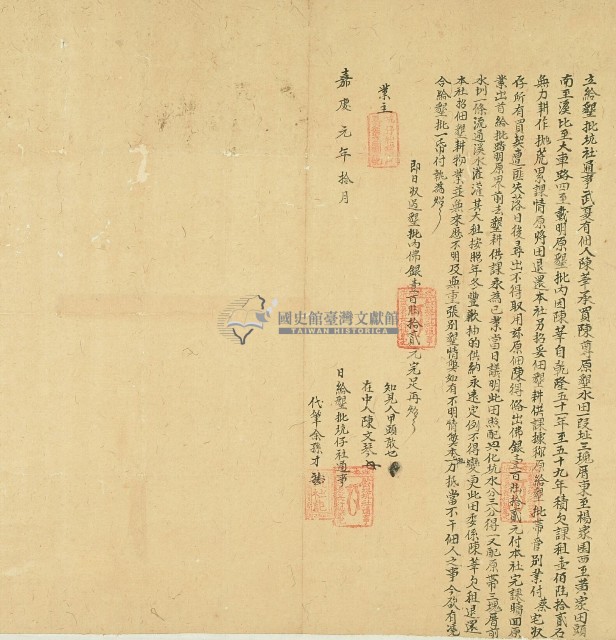 立給墾批坑社通事武夏有佃人陳華承買陳尊原墾水田一段址三塊厝東至楊家園西至黃家田頭
南至溪北至大車路四至載明原墾批內因陳華自乾隆五十一年至五十九年積欠課租壹佰陸拾貳石
無力耕作拋荒累課情原將田退還本社另招妥佃墾耕供課據抑原給墾批帶管別業付蔡宅收
存所有買契遭匪失落日後尋出不得取用茲原佃陳得俻出佛銀壹百陸拾貳元付本社完課將田原
業出首給批踏明原界前去墾耕供課永為己業當日議明此田照配興化坑水分三分得一又配原帶三塊厝前
水圳一條流通溪水灌溉其大租按照年冬豐歉抽的供納永遠定例不得變更此田委係陳華欠租退還
本社招佃墾耕物業並無來歷不明及無重張別墾情獘如有不明情獘本一力抵當不干佃人之事今欲有憑
合給墾批一帋付執為炤
即日收過墾批內佛銀壹百陸拾貳元完足再炤
知見人甲頭敦也
在中人陳文琴
日給墾批坑仔社通事
代筆余孫才
業主
嘉慶元年拾月
國史館臺灣文獻館
TAIWAN HISTORICA